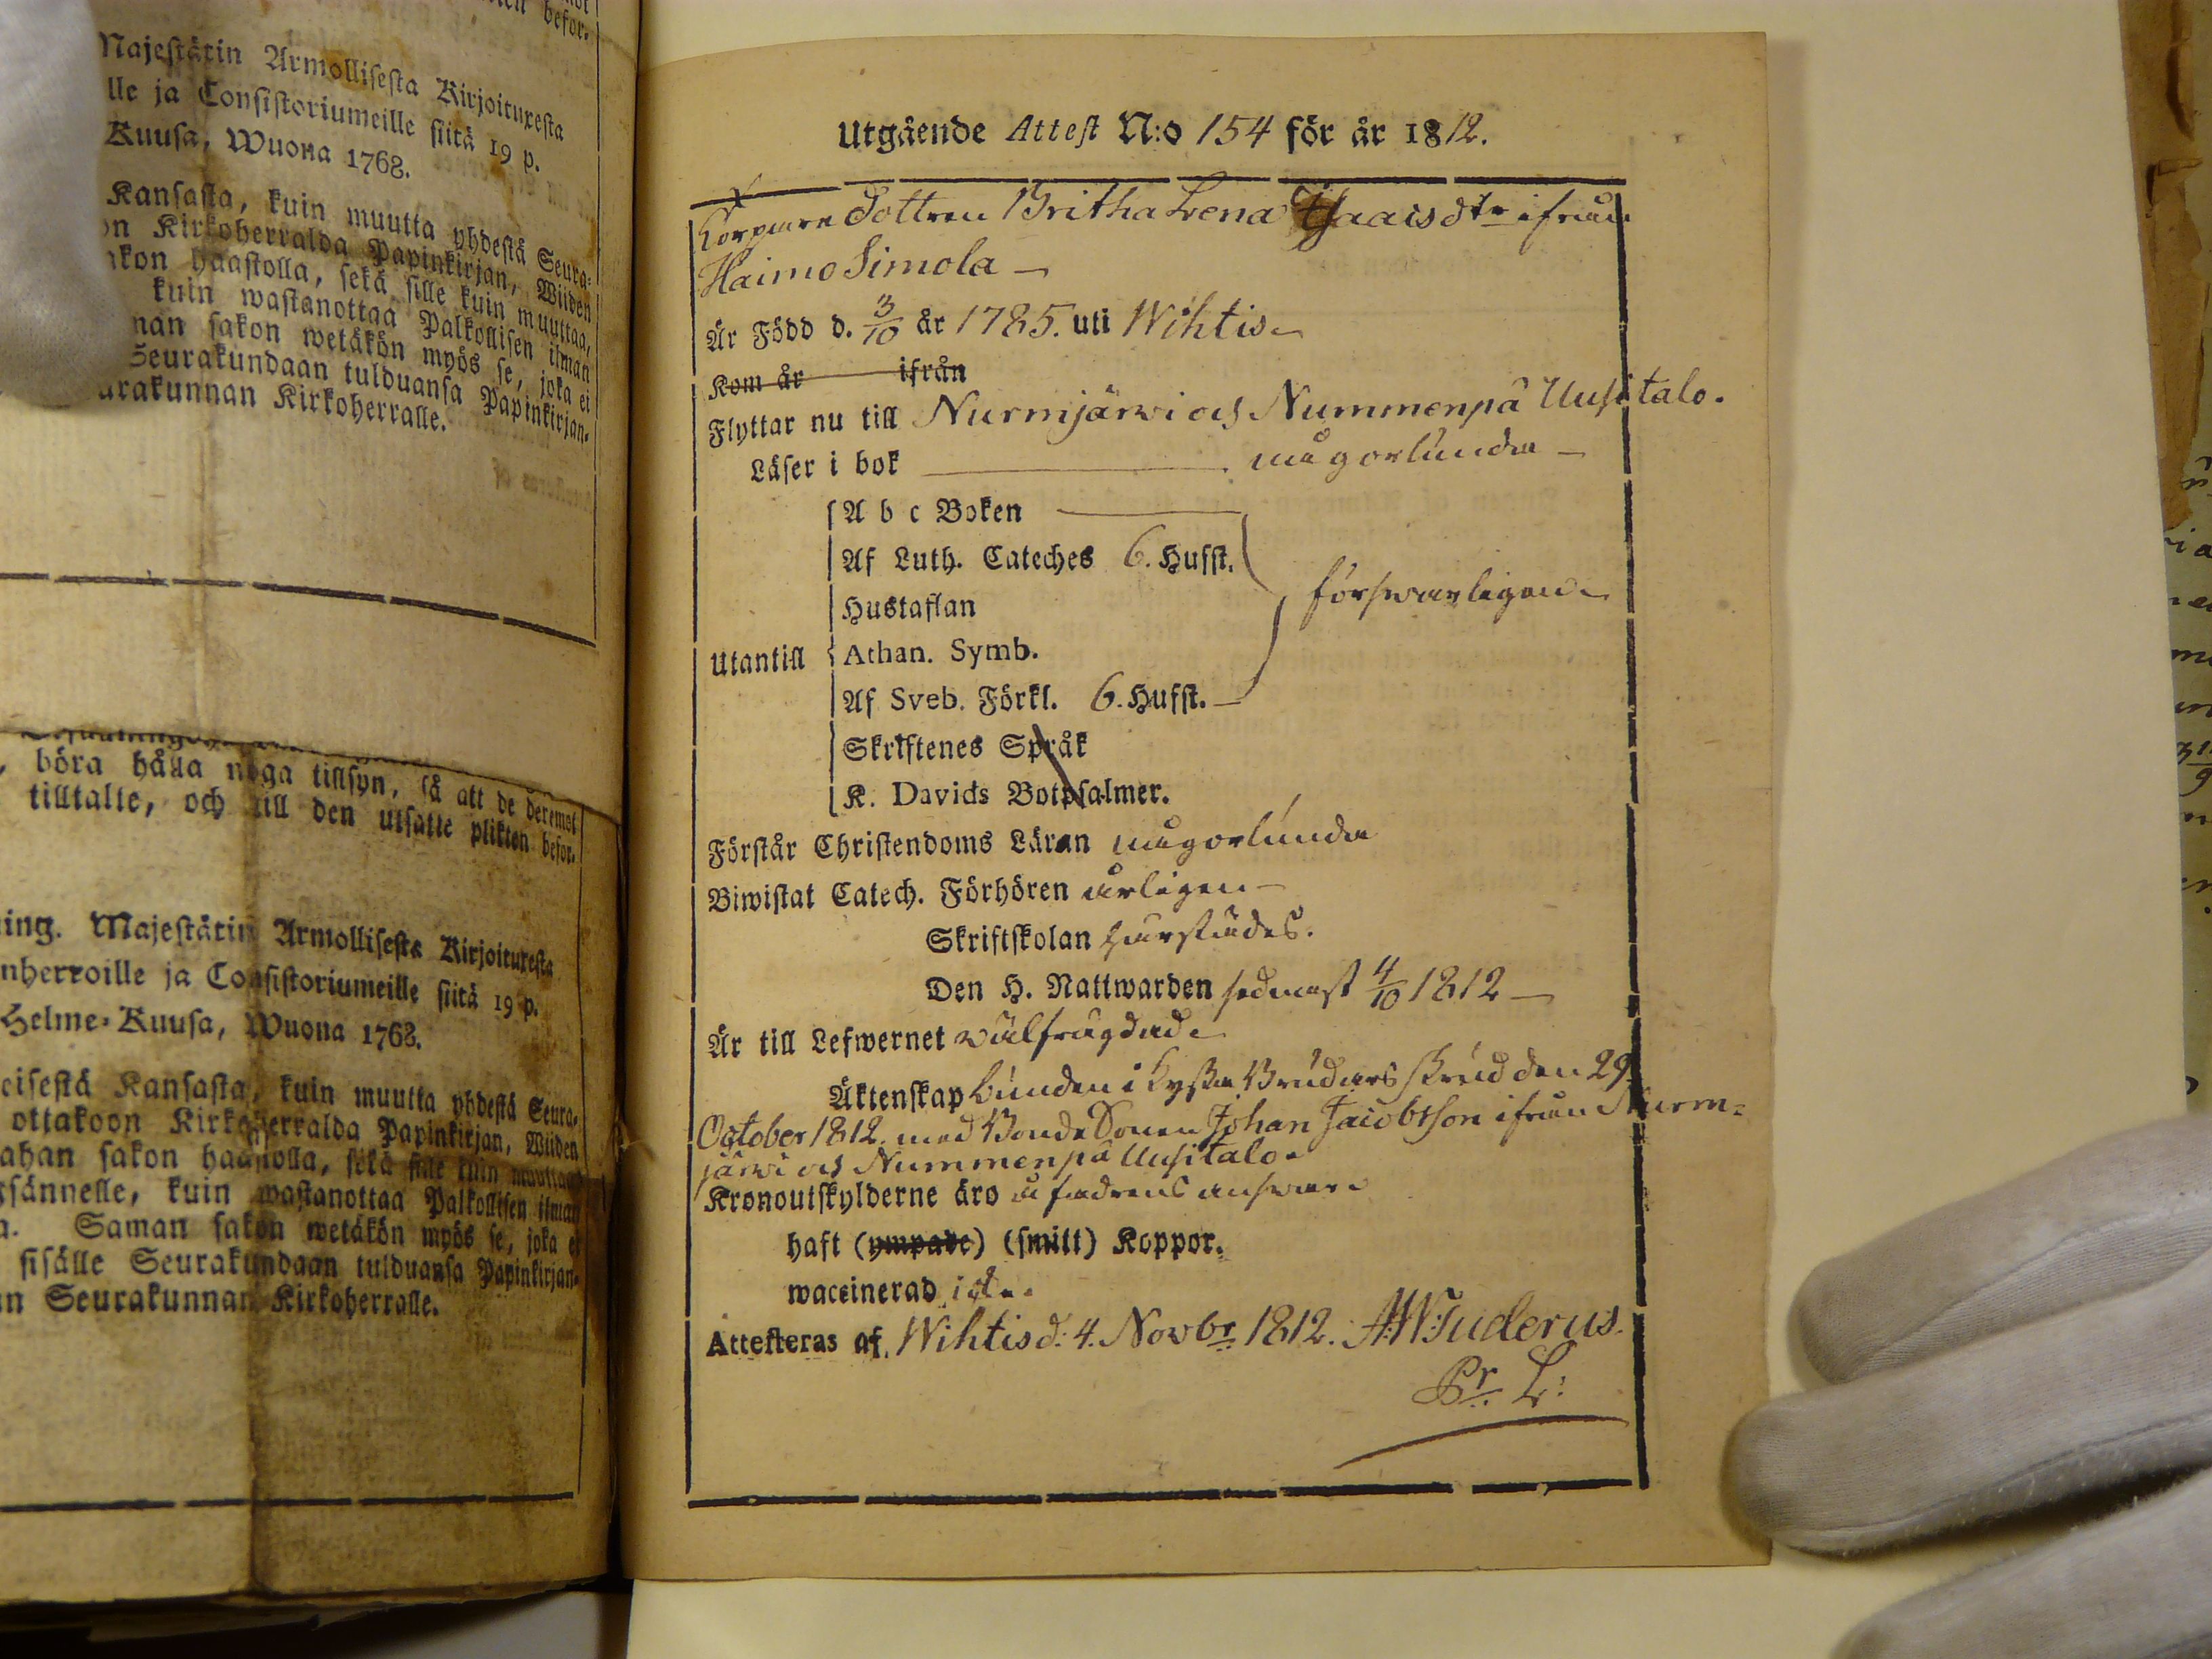 befor-
Majestätin Armollisesta Kirjoituxesta
lle ja Consistoriumeille siitä 19 p.
Kuusa, Wuona 1768.
Kansasta, kuin muutta yhdestä Seura-
on Kirkoherralda Papinkirjan, Wiiden
akon haastolla, sekä sille kuin muuttaa,
kuin wastanottaa Palkollisen ilman
nan sakon wetäkön myös se, joka ei
Seurakundaan tulduansa Papinkirjan-
urakunnan Kirkoherralle.
, böra hålla noga tillsyn, så att de deremot
tilltalte, och till den utsatte plikten befor-
ing. Majestätin Armollisesta Kirjoituxesta
nherroille ja Consistoriumeille siitä 19 p.
Helme-Kuusa, Wuona 1768.
eisestä Kansasta, kuin muutta yhdestä Seura-
ottakoon Kirkoherralda Papinkirjan, Wiiden
ahan sakon haastolla, sekä sille kuin muuttaa
sännelle, kuin wastanottaa Palkollisen ilman
a. Saman sakon wetäkön myös se, joka ei
sisälle Seurakundaan tulduansa Papinkirjan-
n Seurakunnan Kirkoherralle.
Utgående Attest N:o 154 för år 1812.
Torpare Dottren Britha Lena Isaacsdtr ifrån
Haimo Simola
Är Född d. 3/10 år 1785. uti Wihtis
Kom år ifrån
Flyttar nu till Nurmjärwi och Nummenpä Uusitalo.
Läser i bok någorlunda
A b c Boken
Af Luth. Cateches 6. Hufst.
Hustaflan försvarligen
Utantill Athan. Symb.
Af Sveb. Förkl. 6. Hufst.
Skriftenes Språk
K. Davids Botpsalmer.
Förstår Christendoms Läran någorlunda
Biwistat Catech. Förhören årligen
Skriftskolan härstädes.
Den H. Nattwarden sednast 4/10 1812
Är till Lefwernet wälfrägdad
Äktenskap bunden i Kyska Brudars skrud den 29.
October 1812. med Bonde Sonen Johan Jacobsson ifrån Nurm-
järwi och Nummenpä Uusitalo.
Kronoutskylderne äro å fadrens answar
haft (ympade) (smitt) Koppor.
waccinerad icke.
Attesteras af. Wihtis d: 4. Novbr 1812. A:W:Tuderus.
Pr. L: